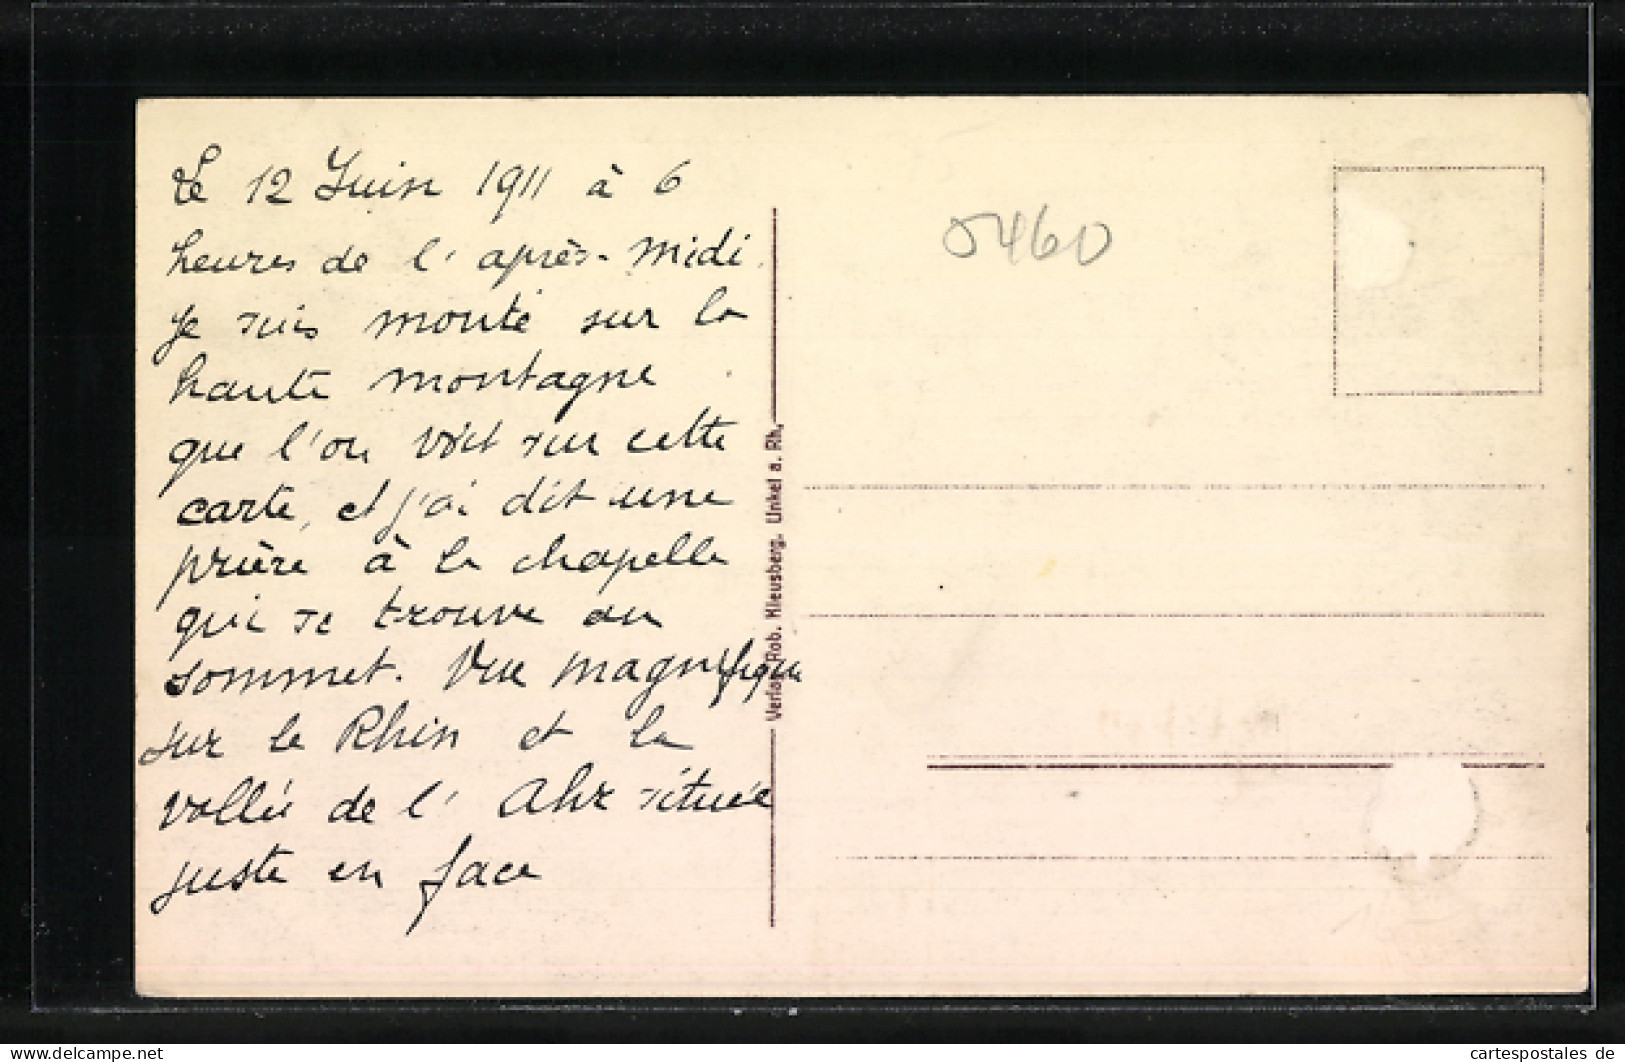 Le 12 Juin 1911 à 6
heures de l'après-midi
je suis monté sur la
haute montagne
que l'on voit sur cette
carte, et j'ai dit une
prière à la chapelle
qui se trouve au
sommet. Vue magnifique
sur le Rhin et la
vallée de l'Ahr située
juste en face
Verlag Rob. Hleusberg, Unkel a. Rh.
5460
www.cartespostales.de
cartespostales de